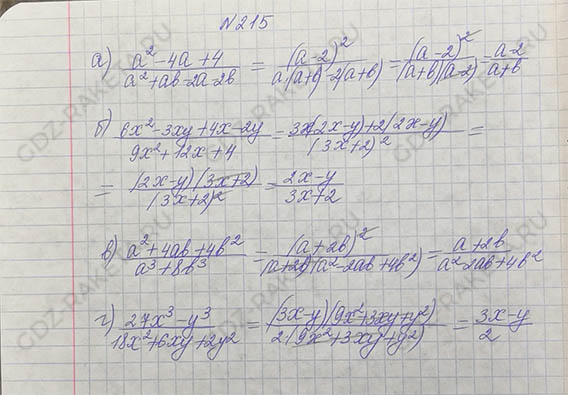 N215
а) a² - 4a + 4 / a² + ab - 2a - 2b = (a - 2)² / a(a + b) - 2(a + b) = (a - 2)² / (a + b)(a - 2) = a - 2 / a + b
б) 6x² - 3xy + 4x - 2y / 9x² + 12x + 4 = 3x(2x - y) + 2(2x - y) / (3x + 2)² =
= (2x - y)(3x + 2) / (3x + 2)² = 2x - y / 3x + 2
в) a² + 4ab + 4b² / a³ + 8b³ = (a + 2b)² / (a + 2b)(a² - 2ab + 4b²) = a + 2b / a² - 2ab + 4b²
г) 27x³ - y³ / 18x² + 6xy + 2y² = (3x - y)(9x² + 3xy + y²) / 2(9x² + 3xy + y²) = 3x - y / 2